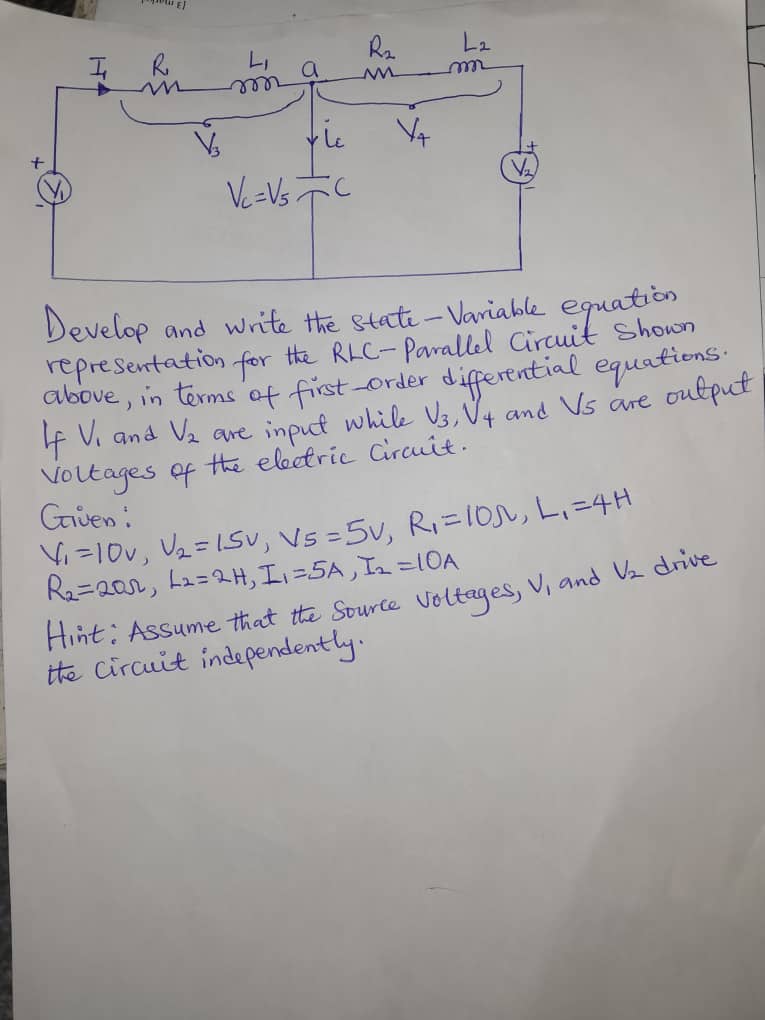 I₁ R₁ L₁ a R₂ L₂
V₃ ic V₄
+ V₁ - Vc=V5 C + V₂ -
Develop and write the state-Variable equation
representation for the RLC-Parallel Circuit Shown
above, in terms of first-order differential equations.
If V₁ and V₂ are input while V₃, V₄ and V5 are output
Voltages of the electric Circuit.
Given:
V₁=10v, V₂=15v, V5=5v, R₁=10Ω, L₁=4H
R₂=20Ω, L₂=2H, I₁=5A, I₂=10A
Hint: Assume that the Source Voltages, V₁ and V₂ drive
the Circuit independently.